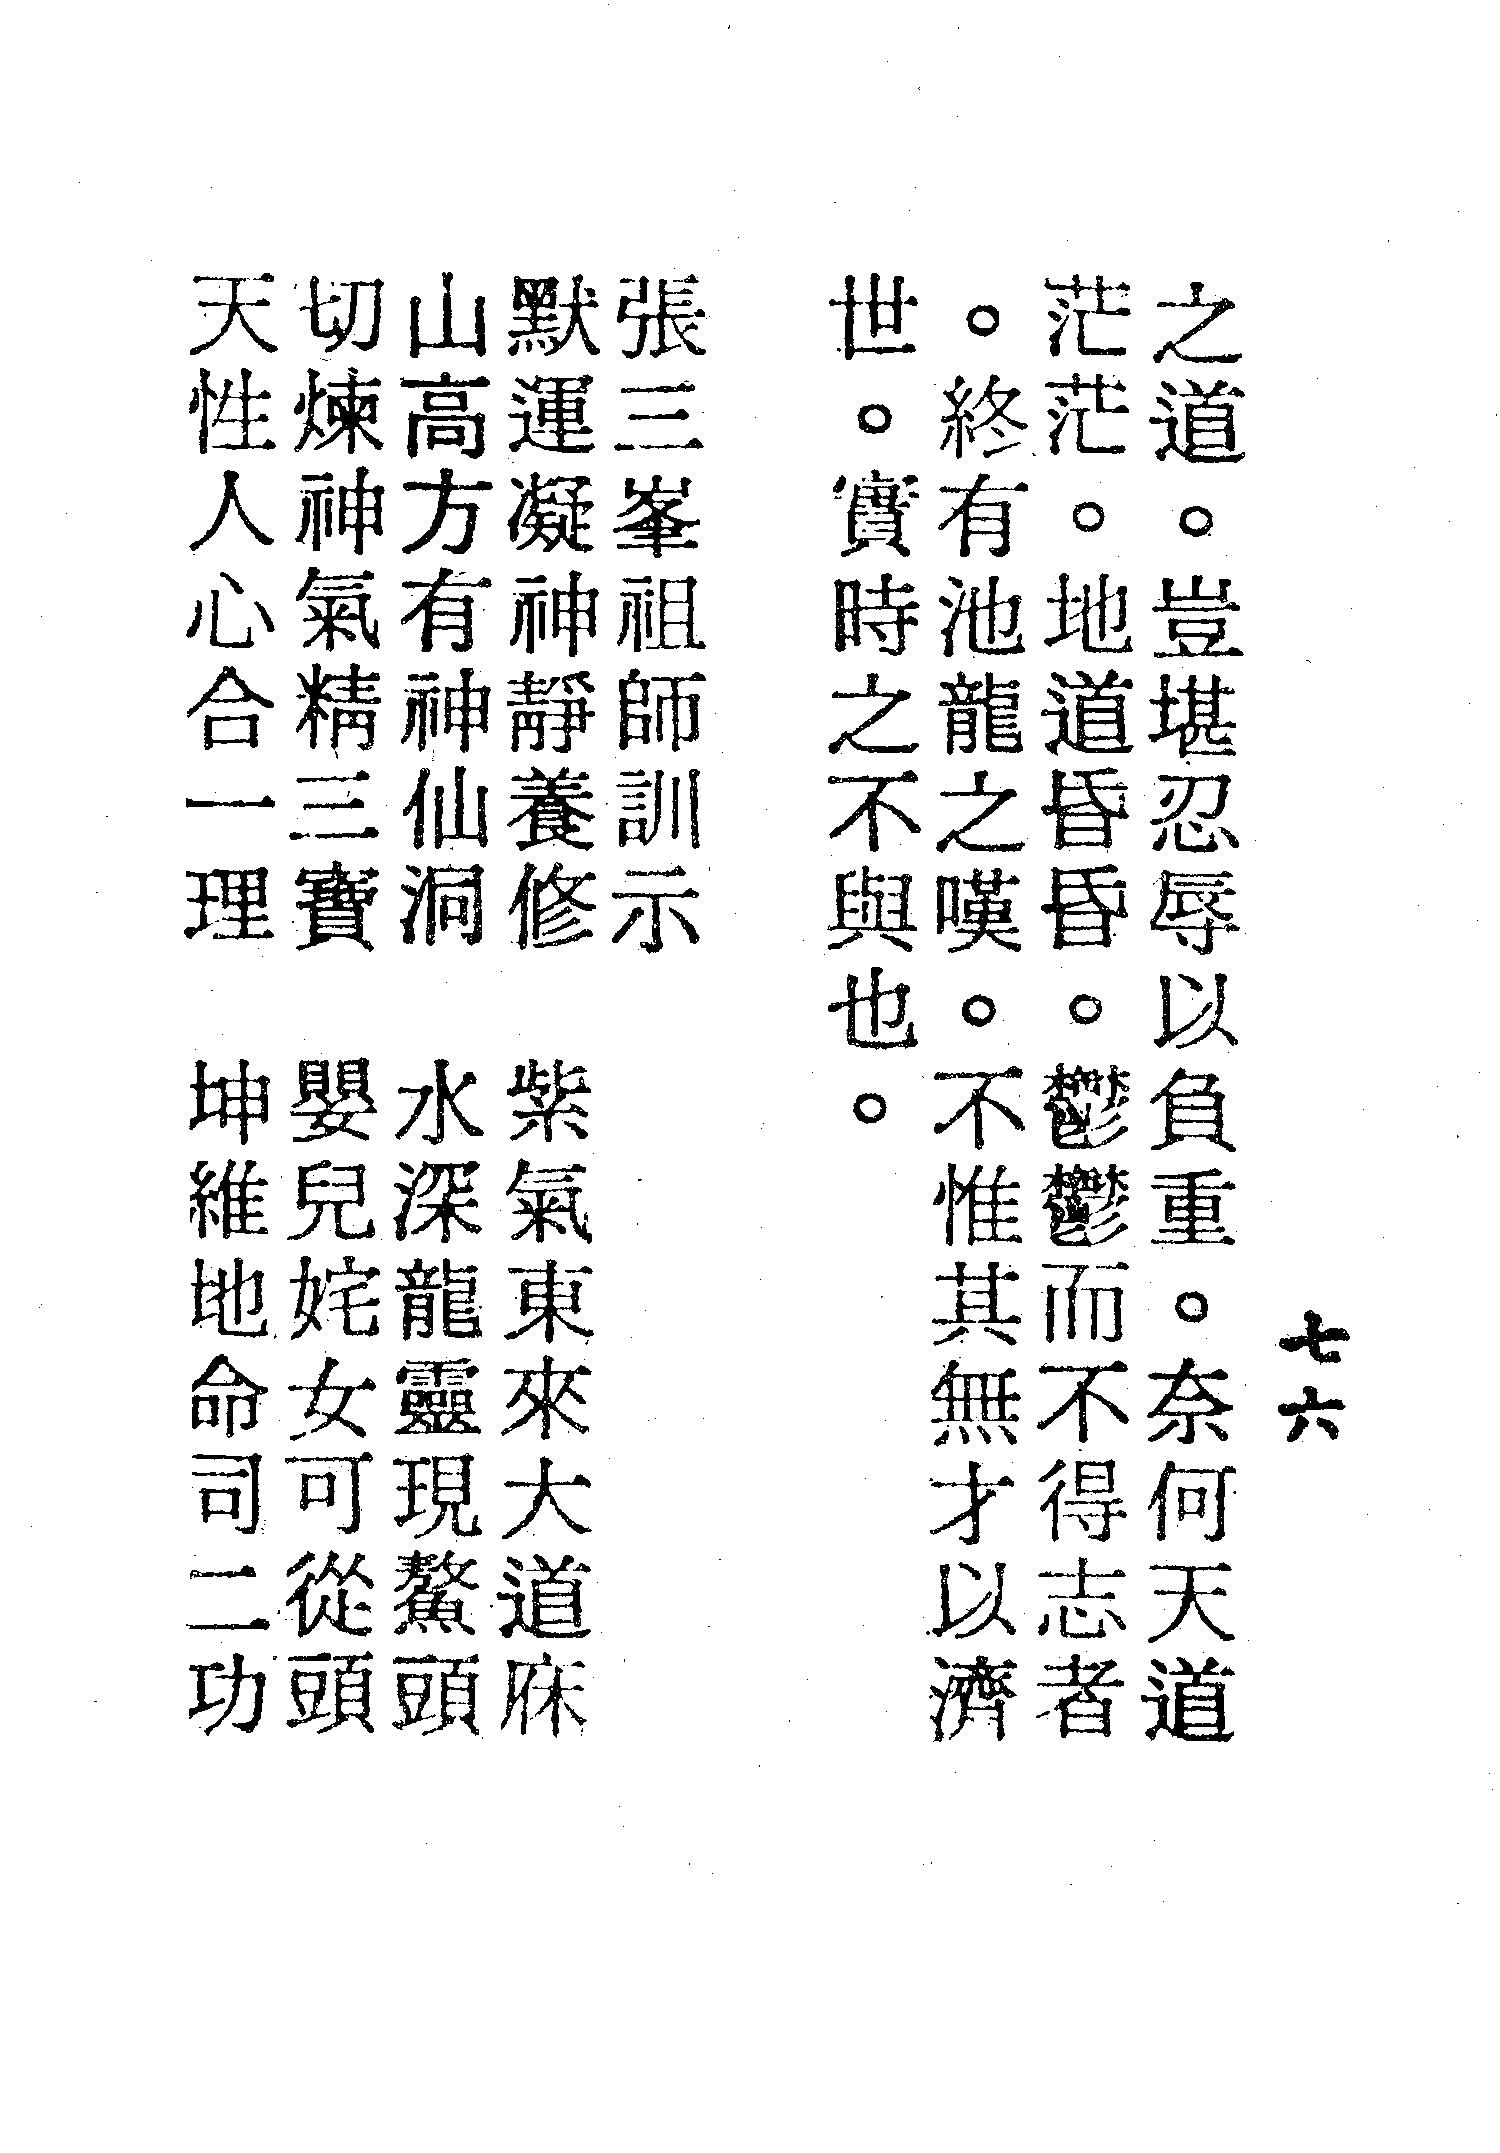 七六
之道。豈堪忍辱以負重。奈何天道
茫茫。地道昏昏。鬱鬱而不得志者
。終有池龍之嘆。不惟其無才以濟
世。實時之不與也。
張三峯祖師訓示
默運凝神靜養修　紫氣東來大道庥
山高方有神仙洞　水深龍靈現鰲頭
切煉神氣精三寶　嬰兒姹女可從頭
天性人心合一理　坤維地命司二功